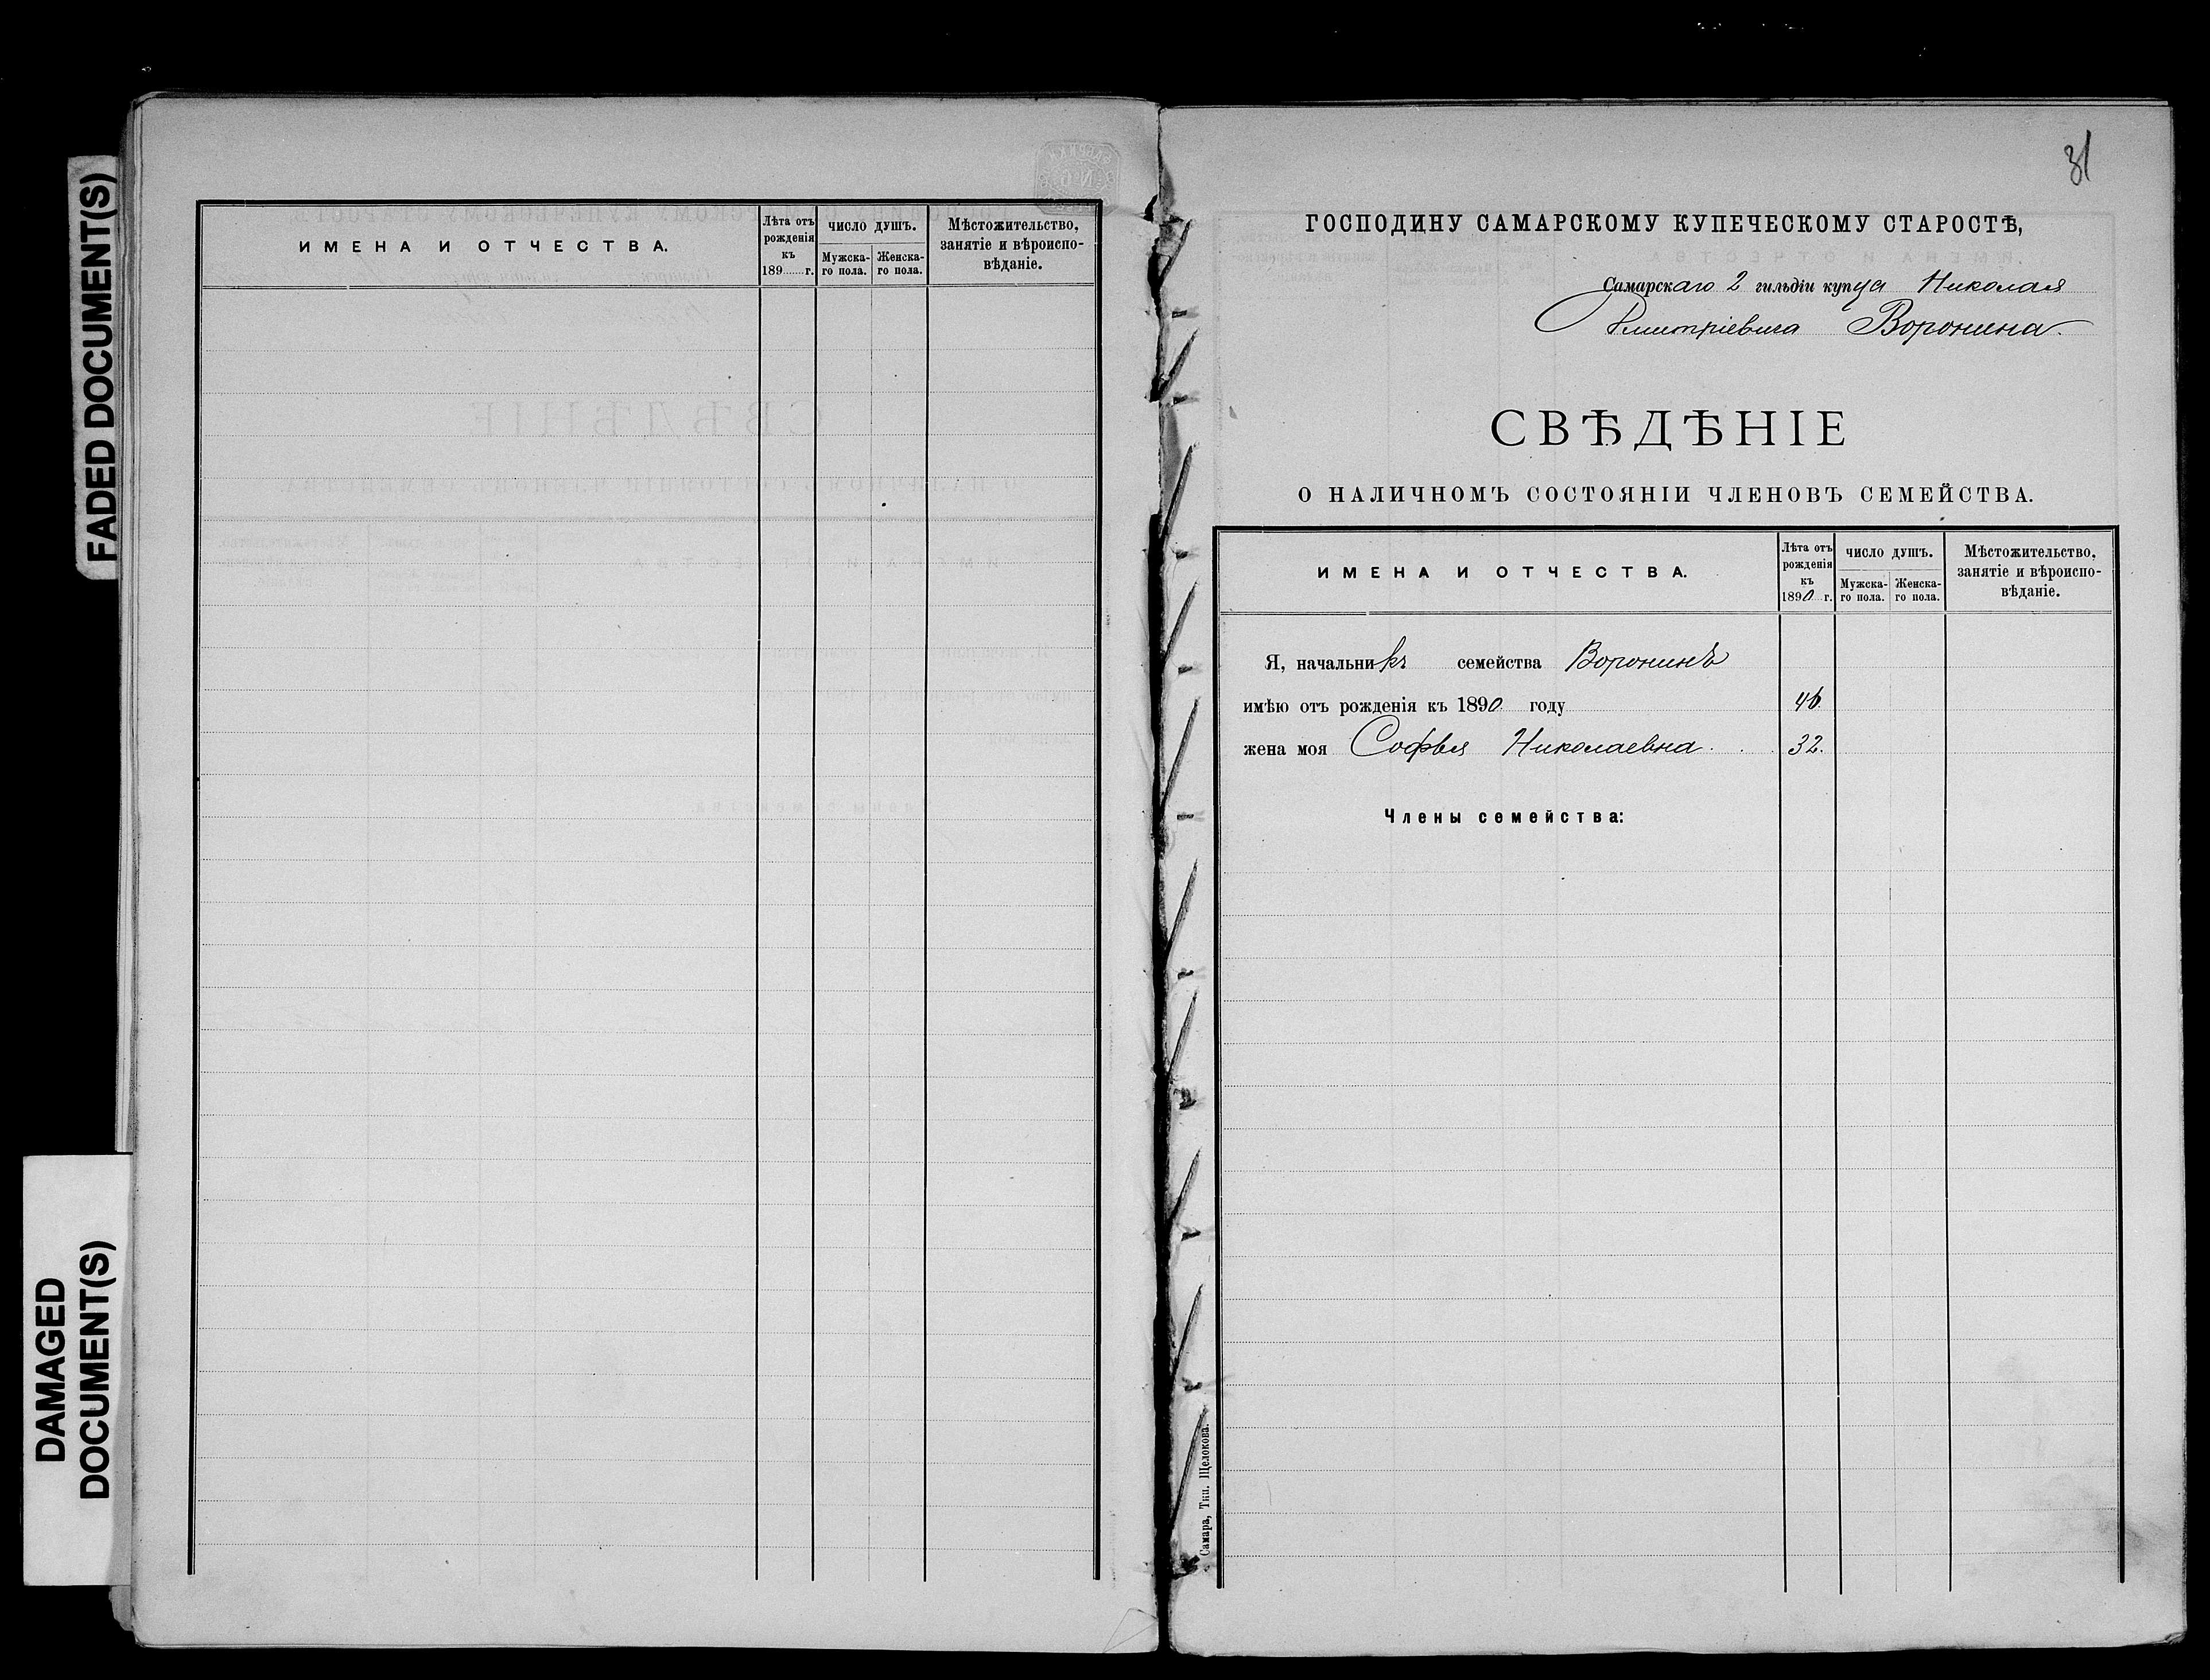 FADED DOCUMENT(S)
DAMAGED
DOCUMENT(S)
ИМЕНА И ОТЧЕСТВА.
Лѣта отъ рожденія къ 189 г.
ЧИСЛО ДУШЪ.
Мужска-го пола.
Женска-го пола.
Мѣстожительство, занятіе и вѣроиспо-вѣданіе.
31
ГОСПОДИНУ САМАРСКОМУ КУПЕЧЕСКОМУ СТАРОСТѢ,
Самарскаго 2 гильдіи купца Николая
Дмитріевича Воронина.
СВѢДѢНІЕ
О НАЛИЧНОМЪ СОСТОЯНІИ ЧЛЕНОВЪ СЕМЕЙСТВА.
ИМЕНА И ОТЧЕСТВА.
Лѣта отъ рожденія къ 1890 г.
ЧИСЛО ДУШЪ.
Мужска-го пола.
Женска-го пола.
Мѣстожительство, занятіе и вѣроиспо-вѣданіе.
Я, начальникъ семейства Воронинъ
имѣю отъ рожденія къ 1890 году 46
жена моя Софья Николаевна 32.
Члены семейства:
Самара, Тип. Щелокова.